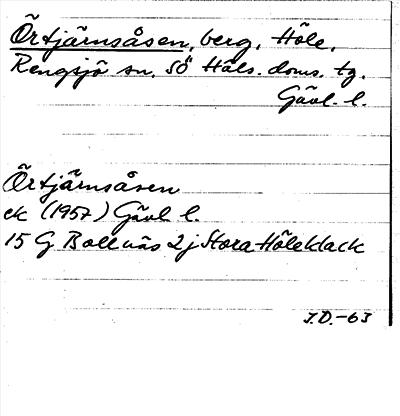 Örtjärnsåsen, berg, Höle,
Rengsjö sn, SÖ Häls. doms. tg.
Gävl. l.
Örtjärnsåsen
ek (1957) Gävl l.
15 G Bollnäs 2j Stora Höleklack
J.D.-63